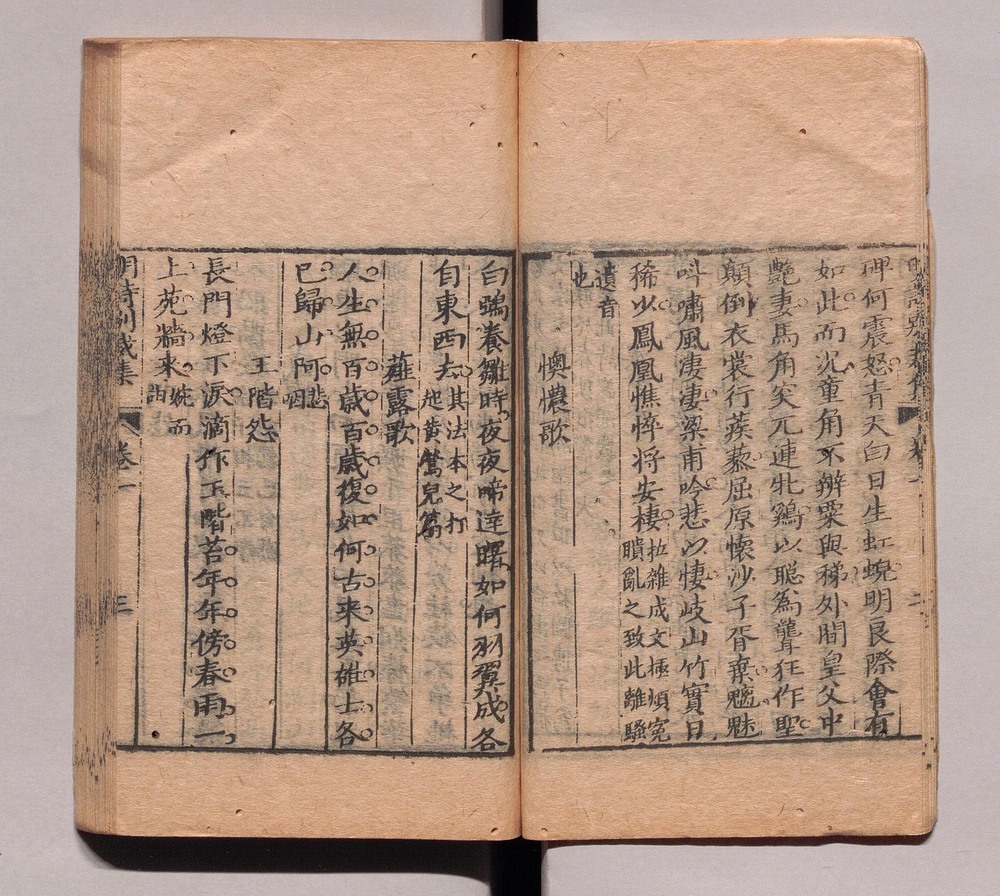 碑何震怒青天白日生虹蜺明良際會有
如此而況童角不辨粟與稊外間皇父中
艷妻馬角突兀連牝鷄以聰為聾狂作聖
顛倒衣裳行蒺藜屈原懷沙子胥棄魑魅
呌嘯風淒淒梁甫吟悲以悽岐山竹實日
稀以鳳凰憔悴將安棲
拉雜成文極煩冤
瞶亂之致此離騷
遺音
也
懊憹歌
白鵶養雛時夜夜啼達曙如何羽翼成各
自東西去
其法本之打
起黃鶯兒篇
薤露歌
人生無百歲百歲復如何古来英雄士各
已歸山阿
悲
咽
玉階怨
長門燈下淚滴作玉階苔年年傍春雨一
上苑牆来
婉而
諧
明詩別裁集
卷一
三